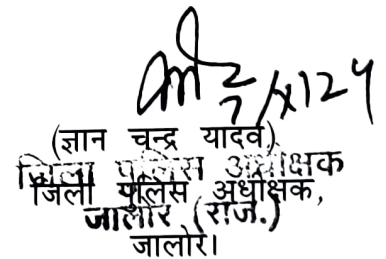 (ज्ञान चन्द्र यादव)
जिला पुलिस अधीक्षक
जिला पुलिस अधीक्षक,
जालोर (राज.)
जालोर।